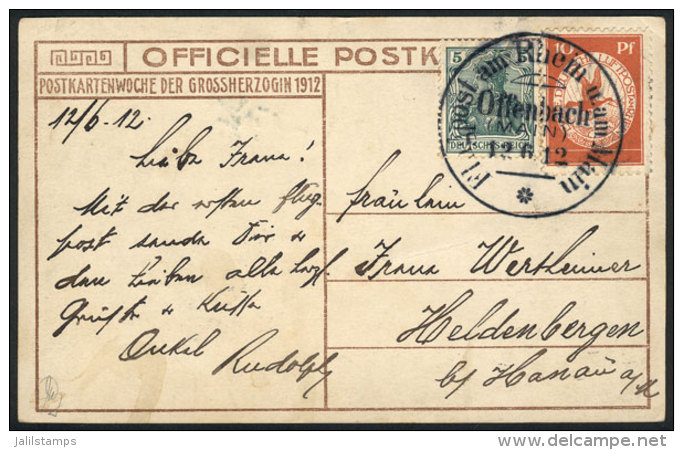 OFFICIELLE POSTK
POSTKARTENWOCHE DER GROSSHERZOGIN 1912
5
DEUTSCHES REICH
10 Pf
Flugpost am Rhein u. am Main
Offenbach
(MAIN)
12.6.12
12/6.12.
Liebe Frana!
Mit der ersten Flug-
post sende Dir &
den Lieben alle herzl.
Grüße & Küsse
Onkel Rudolph
Fräulein
Frana Wertheimer
Heldenbergen
b/ Hanau a/M
jalilstamps
delcampe.net